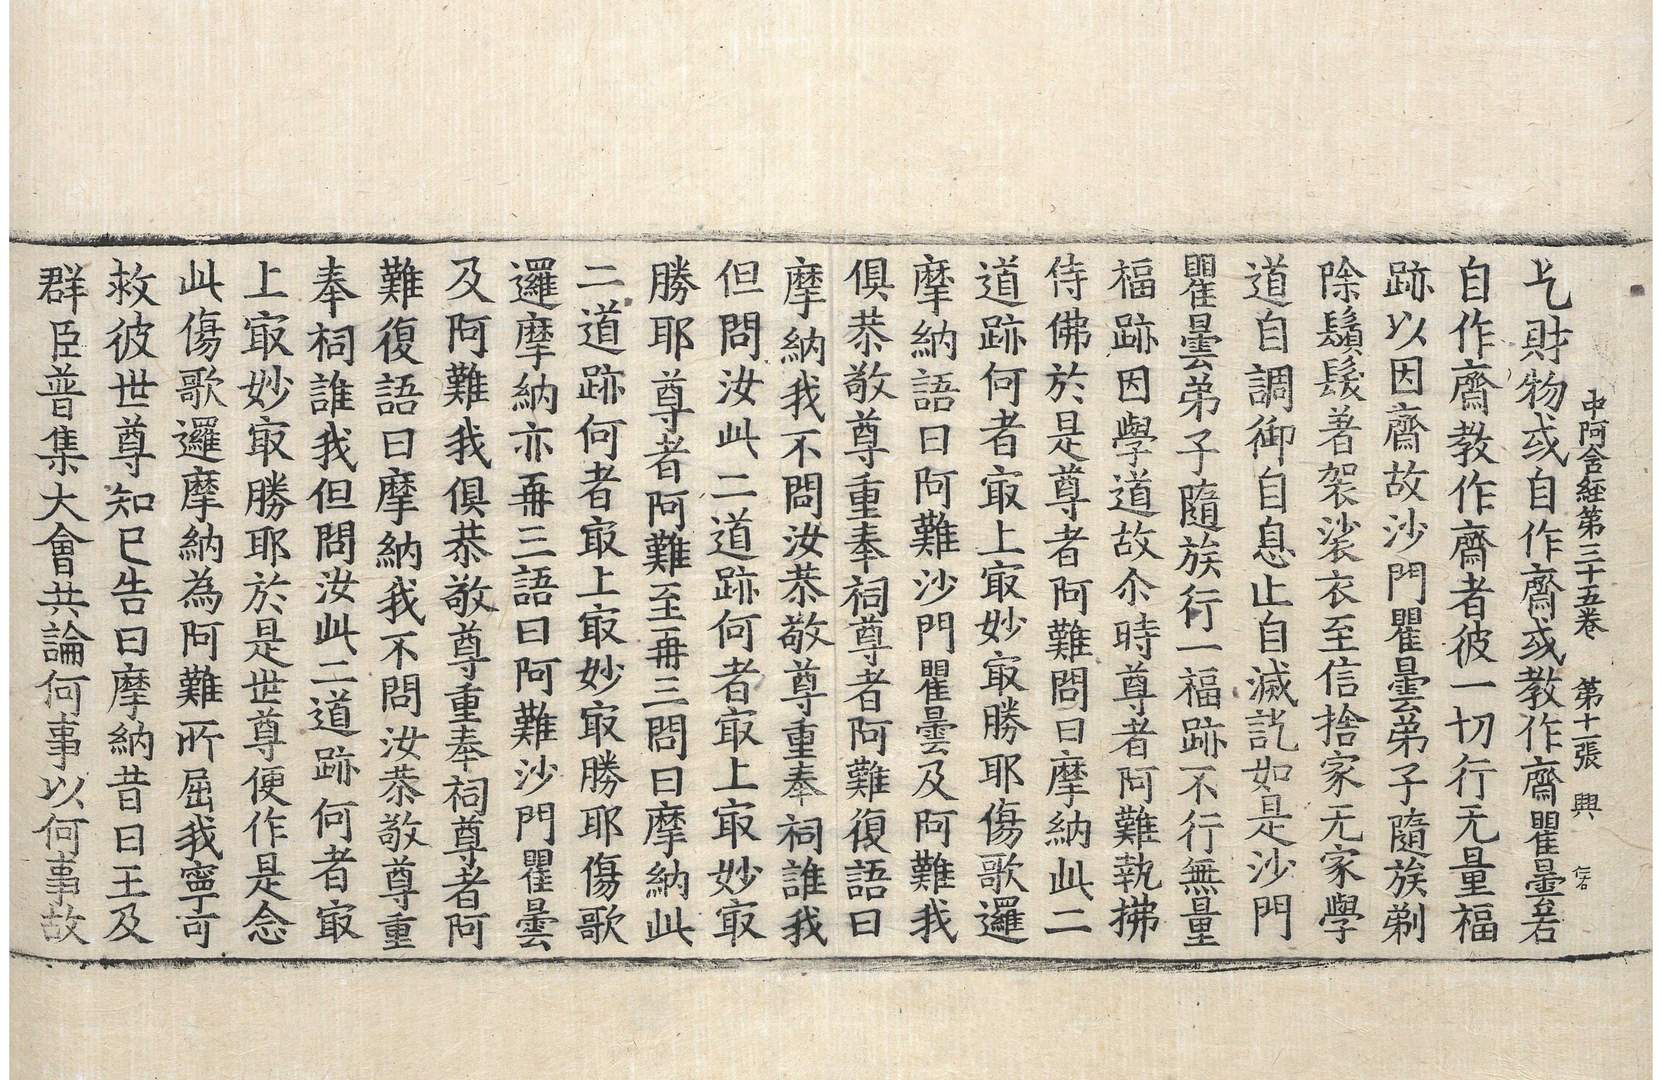 中阿含經第三十五卷 第十一張 興
乞財物或自作齋或教作齋瞿曇若
自作齋教作齋者彼一切行无量福
跡以因齋故沙門瞿曇弟子隨族剃
除鬚髮著袈裟衣至信捨家无家學
道自調御自息止自滅訖如是沙門
瞿曇弟子隨族行一福跡不行無量
福跡因學道故尒時尊者阿難執拂
侍佛於是尊者阿難問曰摩納此二
道跡何者㝡上㝡妙㝡勝耶傷歌邏
摩納語曰阿難沙門瞿曇及阿難我
俱恭敬尊重奉祠尊者阿難復語曰
摩納我不問汝恭敬尊重奉祠誰我
但問汝此二道跡何者㝡上㝡妙㝡
勝耶尊者阿難至再三問曰摩納此
二道跡何者㝡上㝡妙㝡勝耶傷歌
邏摩納亦再三語曰阿難沙門瞿曇
及阿難我俱恭敬尊重奉祠尊者阿
難復語曰摩納我不問汝恭敬尊重
奉祠誰我但問汝此二道跡何者㝡
上㝡妙㝡勝耶於是世尊便作是念
此傷歌邏摩納為阿難所屈我寧可
救彼世尊知已告曰摩納昔日王及
群臣普集大會共論何事以何事故